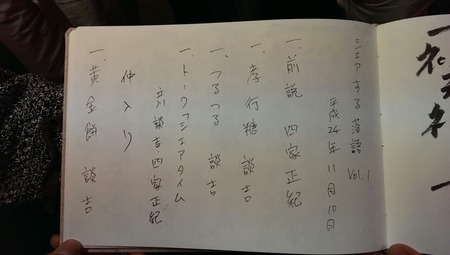 シェアする落語 Vol.1
平成24年11月10日
一、前説 四家正紀
一、孝行糖 談吉
一、つるつる 談吉
一、トークシェアタイム
立川談吉・四家正紀
仲入り
一、黄金餅 談吉